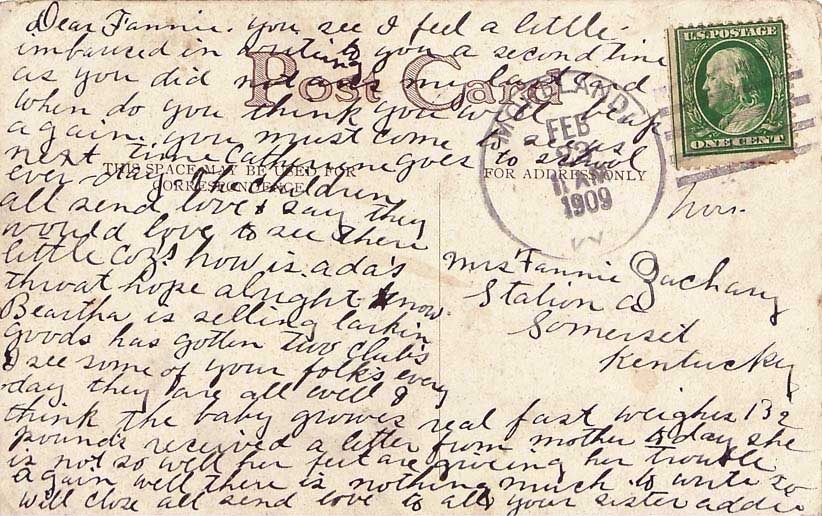 Dear Fannie. you see I feel a little
imbaused in writing to you a second time
as you did not ans my last card
when do you think you will be up
again. you must come to see us
next time Catherine goes to school
ever day the children
all send love & say they
would love to see there
little cozs. how is ada's
throat hope alright know.
Beartha is selling larkin
goods has gotten two clubs
I see some of your folks every
day they are all well I
think the baby growes real fast weighes 13½
pounds received a letter from mother to day she
is not so well her feet are giveing her trouble
again well there is nothing much to write so
will close all send love to all your sister addie
Post Card
THIS SPACE MAY BE USED FOR
CORRESPONDENCE
FOR ADDRESS ONLY
MORELAND
FEB
11 AM
1909
KY
U.S. POSTAGE
ONE CENT
Mrs Fannie Zachary
Station a
Somerset
Kentucky